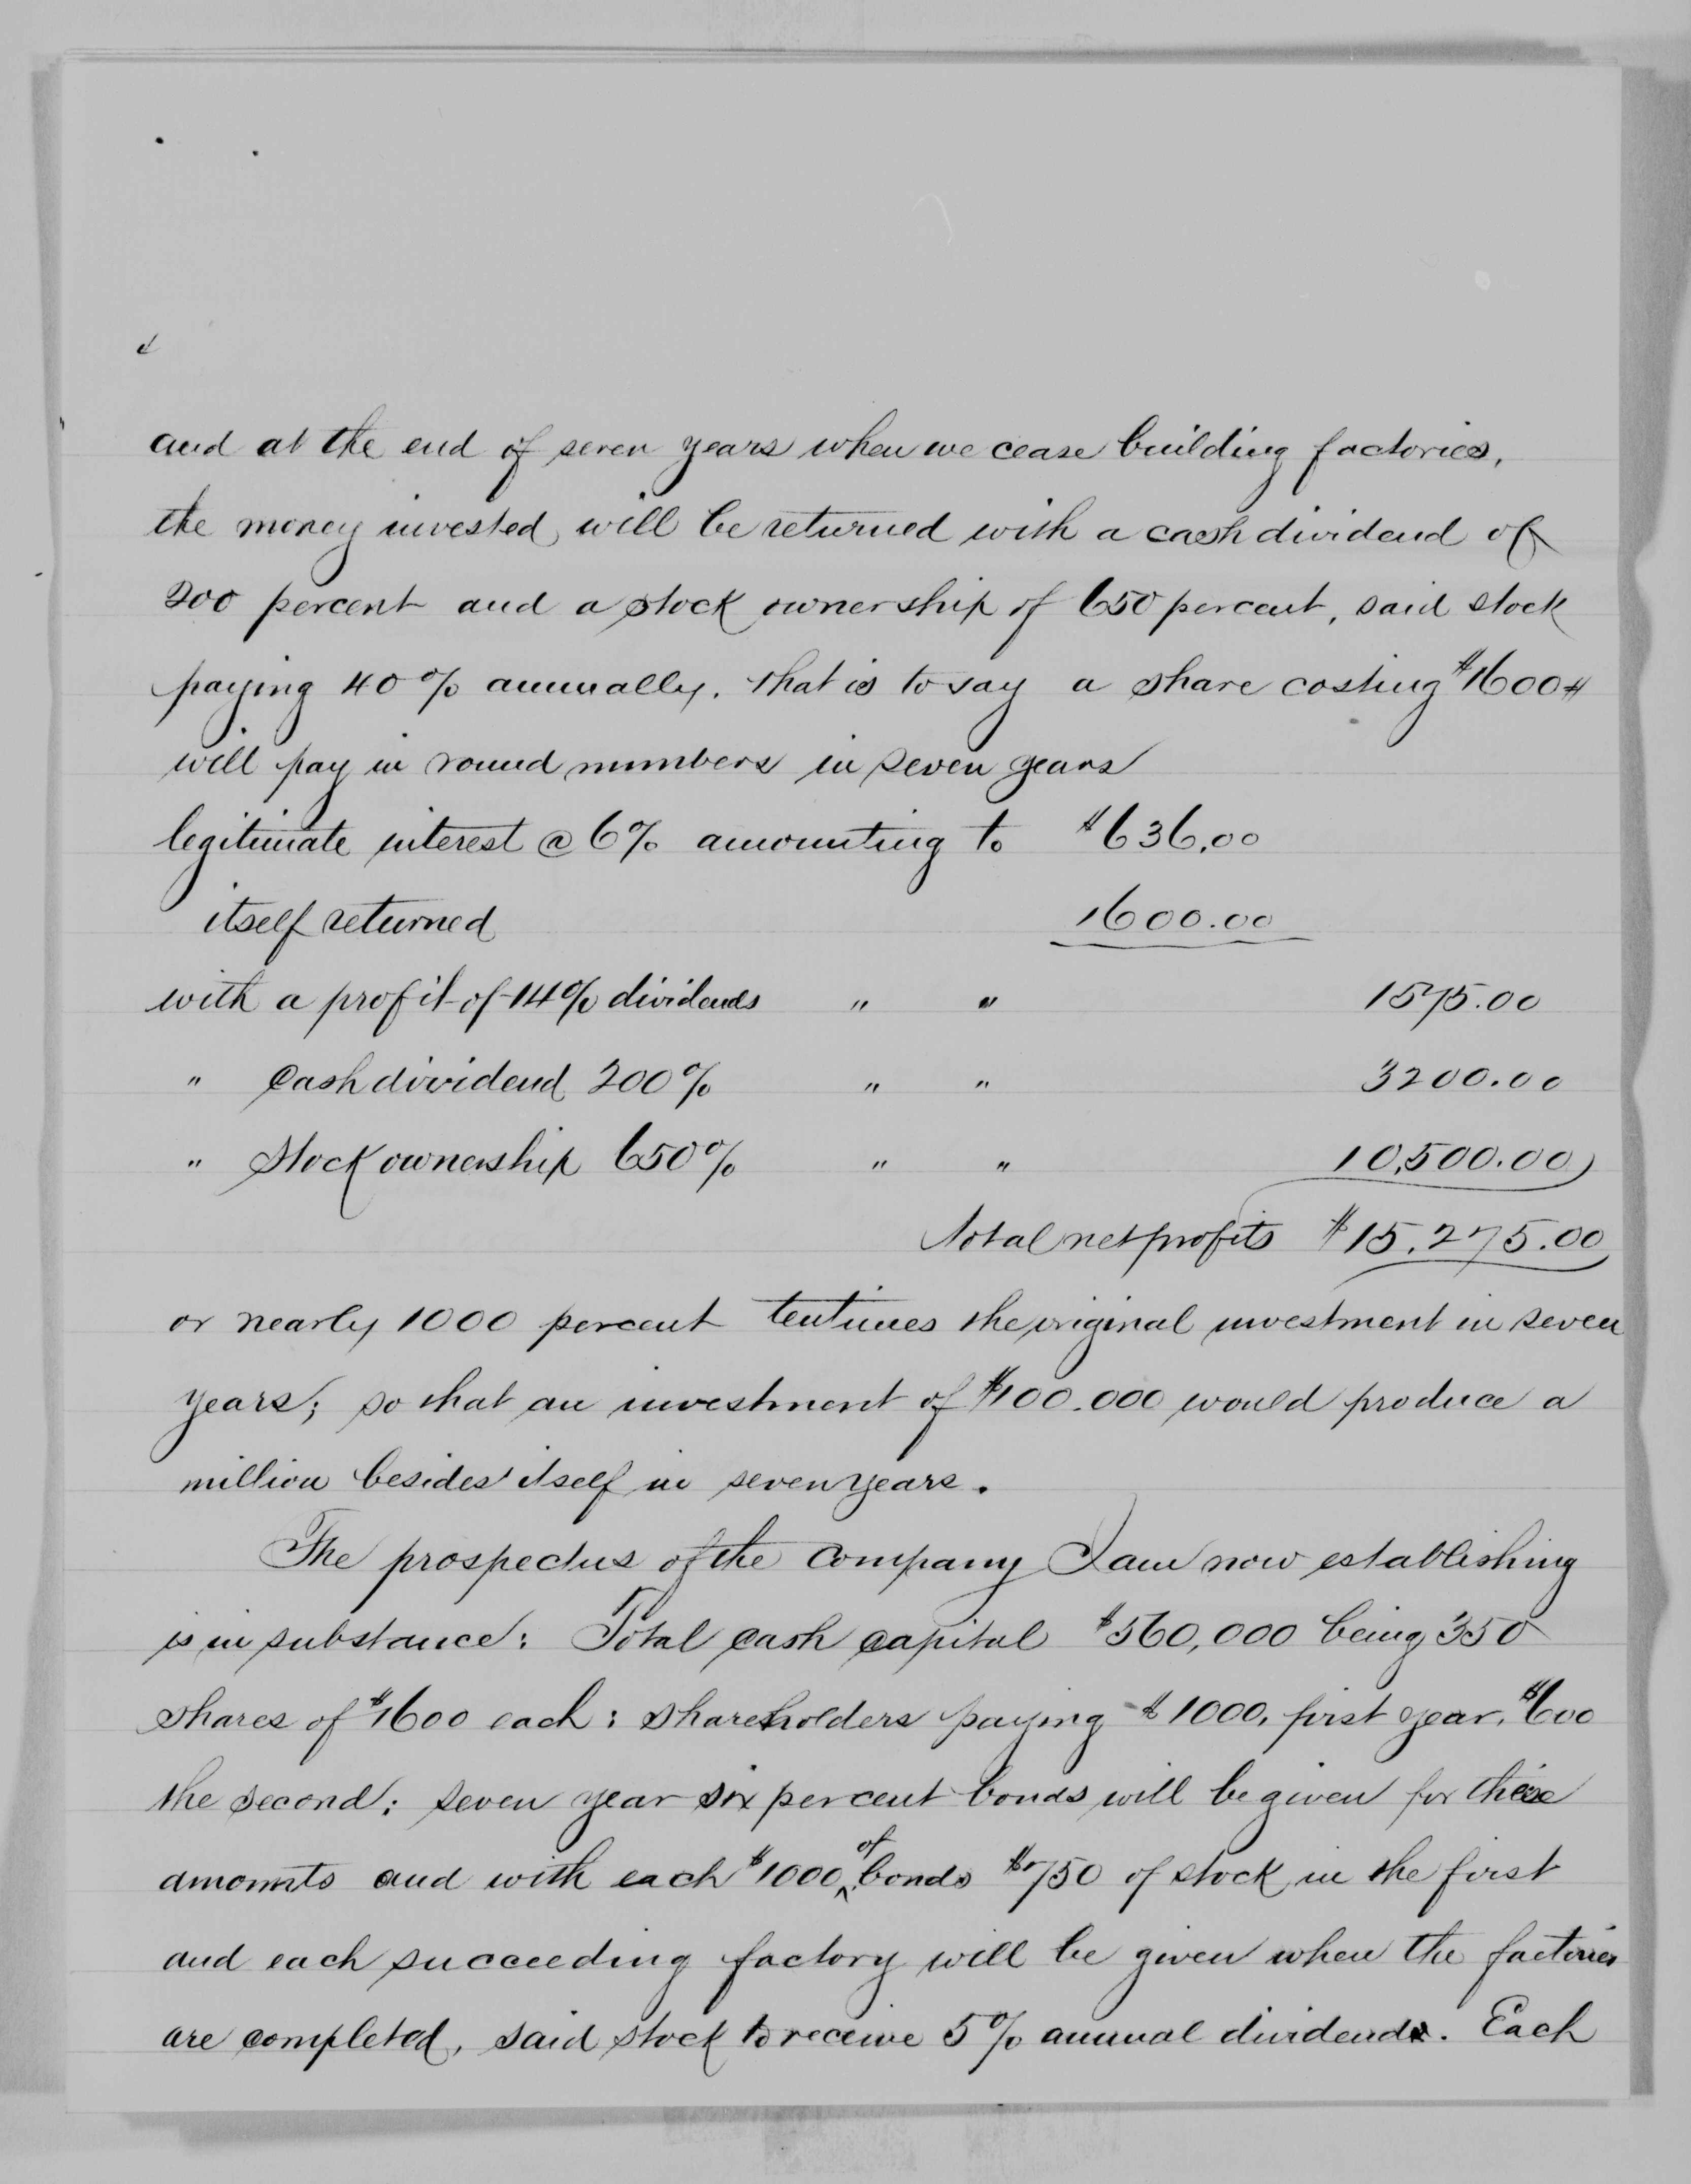 and at the end of seven years when we cease building factories,
the money invested will be returned with a cash dividend of
200 percent and a stock ownership of 650 percent, said stock
paying 40% annually. that is to say a share costing $1600
will pay in round numbers in seven years
legitimate interest @ 6% amounting to $636.00
itself returned 1600.00
with a profit of 14% dividends " " 1575.00
" Cash dividend 200% " " 3200.00
" Stock ownership 650% " " 10,500.00
Total net profits $15.275.00
or nearly 1000 percent ten times the original investment in seven
years; so that an investment of $100.000 would produce a
million besides itself in seven years.
The prospectus of the Company I am now establishing
is in substance: Total cash capital $560,000 being 350
shares of $1600 each: shareholders paying $1000, first year, $600
the second: seven year six percent bonds will be given for these
amounts and with each $1000 of bonds $750 of stock in the first
and each succeeding factory will be given when the factories
are completed, said stock to receive 5% annual dividends. Each